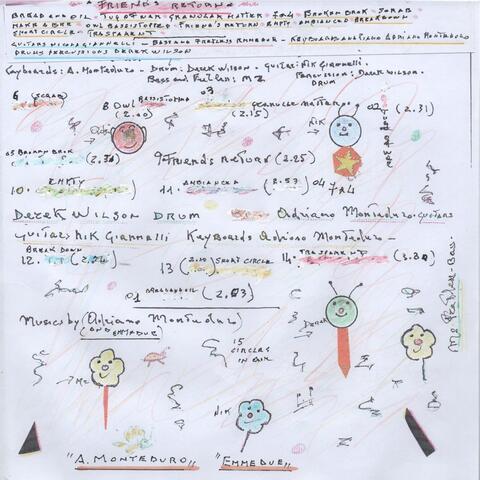 FRIEND'S RETURN
BREAD AND OIL TUG OF WAR GRANULAR MATTER 7x4 BROKEN BROK SCRAB
MAKE A BEE OWL BASSISTOFFA FRIEND'S RETURN EMPTY AMBIANCED BREAKDOWN
SHORT CIRCLE - TRASPARENT
GUITARS NICK GIANNELLI - BASS FRETLESS EMMEDUE - KEYBOARDS AND PIANO ADRIANO MONTEDURO
DRUMS PERCUSSIONS DEREK WILSON
Keyboards: A. Monteduro - Drum: Derek Wilson - Guitar: Nik Giannelli
Bass and Fretless: M2
Percussion: Derek Wilson -
DRUM
6 (SCRAB)
8 Owl BASSISTOFFA
(2.00)
03
(2.15)
02 (2.31)
NIK
05 BROKEN BROK (2.34)
9 Friend's Return (2.25)
10. EMPTY
11. AMBIANCED (2.53) 04 7x4
Derek Wilson DRUM Adriano Monteduro. GUITARS
Guitar: Nik Giannelli Keyboards Adriano Monteduro -
BREAK DOWN
12.
13 (2.00) SHORT CIRCLE
14. TRASPARENT (3.30)
01 BREADANDOIL (2.03)
Derek
Me Fretless - Bass.
Musics by (Adriano Monteduro)
(AND EMMEDUE)
15
CIRCLES
IN BOX
Me
NIK
"A. MONTEDURO" "EMMEDUE"